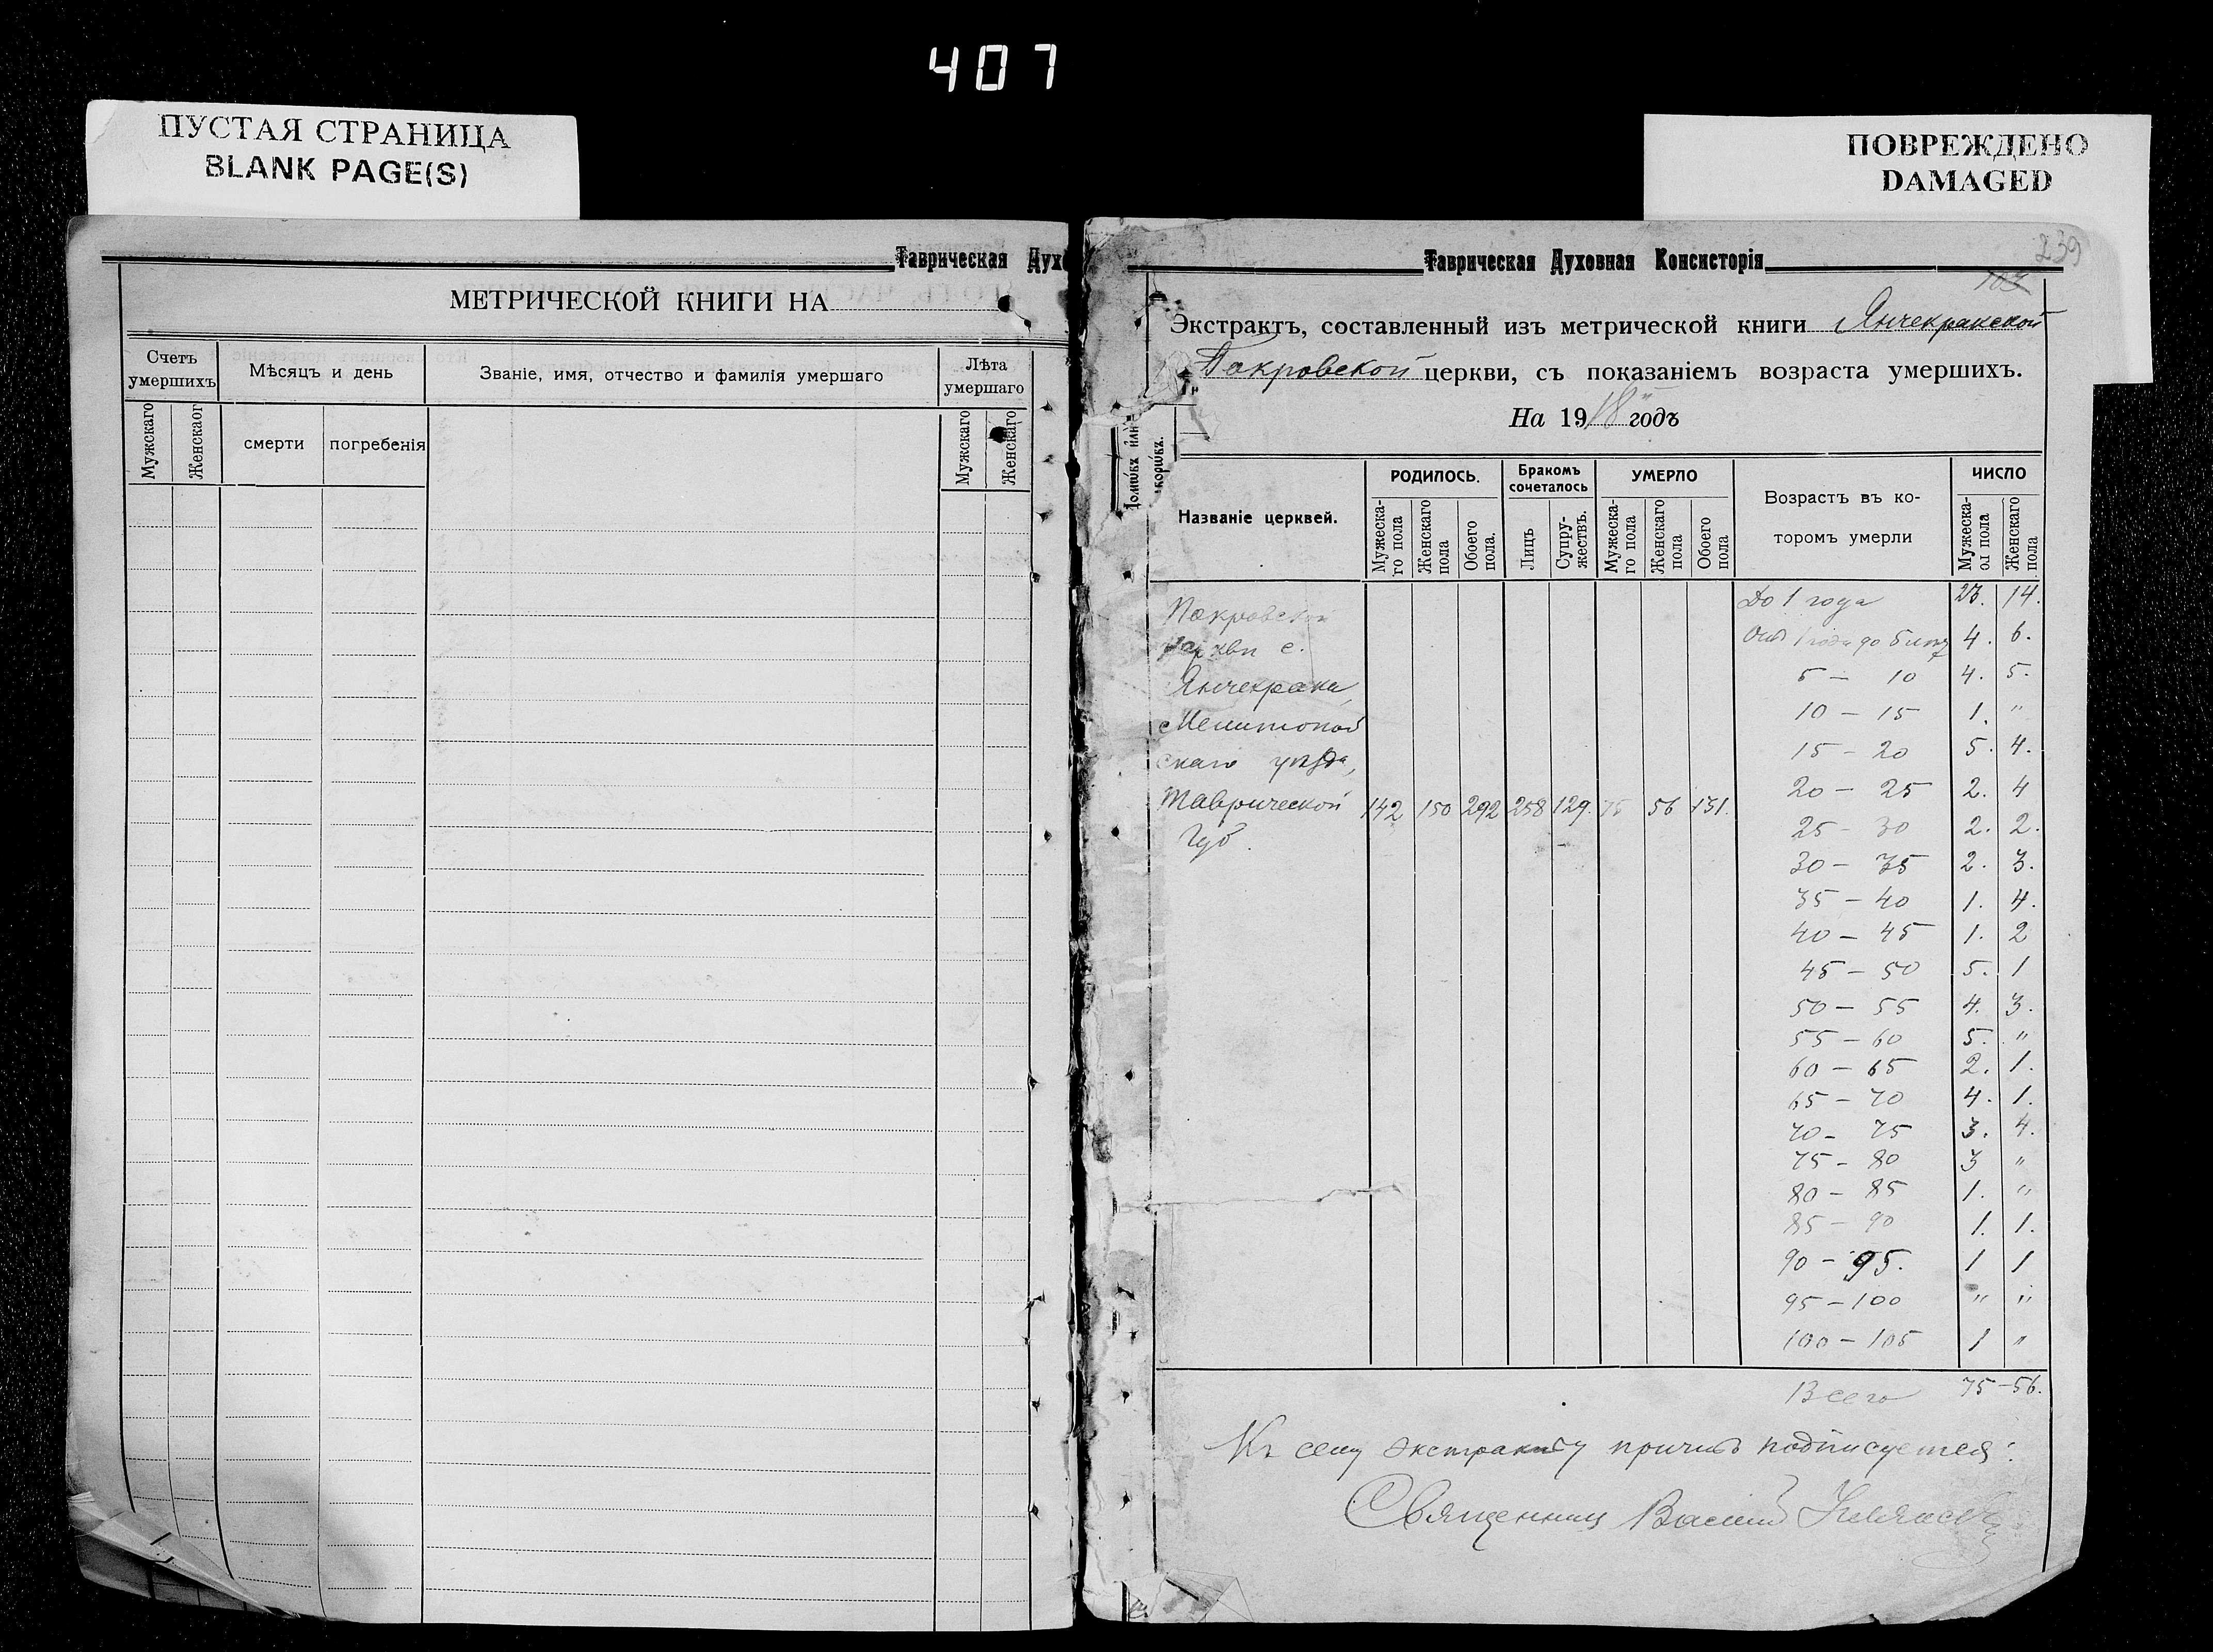 407
ПУСТАЯ СТРАНИЦА
BLANK PAGE(S)
ПОВРЕЖДЕНО
DAMAGED
Таврическая Духо
МЕТРИЧЕСКОЙ КНИГИ НА
Счетъ умершихъ
Мѣсяцъ и день
Званіе, имя, отчество и фамилія умершаго
Лѣта умершаго
Мужскаго
Женскаог
смерти
погребенія
Мужскаго
Женскаго
239
103
Таврическая Духовная Консисторія
Экстрактъ, составленный изъ метрической книги Янчекракской
Покровской церкви, съ показаніемъ возраста умершихъ.
На 1918 годъ
Названіе церквей.
РОДИЛОСЬ.
Бракомъ сочеталось
УМЕРЛО
Возрастъ въ ко-
торомъ умерли
ЧИСЛО
Мужеска-го пола
Женскаго пола
Обоего пола.
Лицъ
Супру-жествъ.
Мужеска-го пола
Женскаго пола
Обоего пола
Мужеска-ог пола
Женскаго пола
Покровской
церкви с.
Янчекрака,
Мелитополь
скаго уѣзда,
Таврической 142 150 292 258 129. 75 56 131.
Губ.
До 1 года 23. 14.
Отъ 1 года до 5 лѣтъ 4. 6.
5 — 10 4. 5.
10 — 15 1. "
15 — 20 5. 4.
20 — 25 2. 4
25 - 30 2. 2.
30 — 35 2. 3.
35 — 40 1. 4.
40 — 45 1. 2
45 — 50 5. 1
50 — 55 4. 3.
55 — 60 5. "
60 — 65 2. 1.
65 — 70 4. 1.
70 - 75 3. 4.
75 - 80 3 "
80 - 85 1. "
85 - 90 1. 1.
90 - 95. 1 1
95 - 100 " "
100 - 105 1 "
Всего 75-56.
Къ сему экстракту причтъ подписуется:
Священникъ Василій